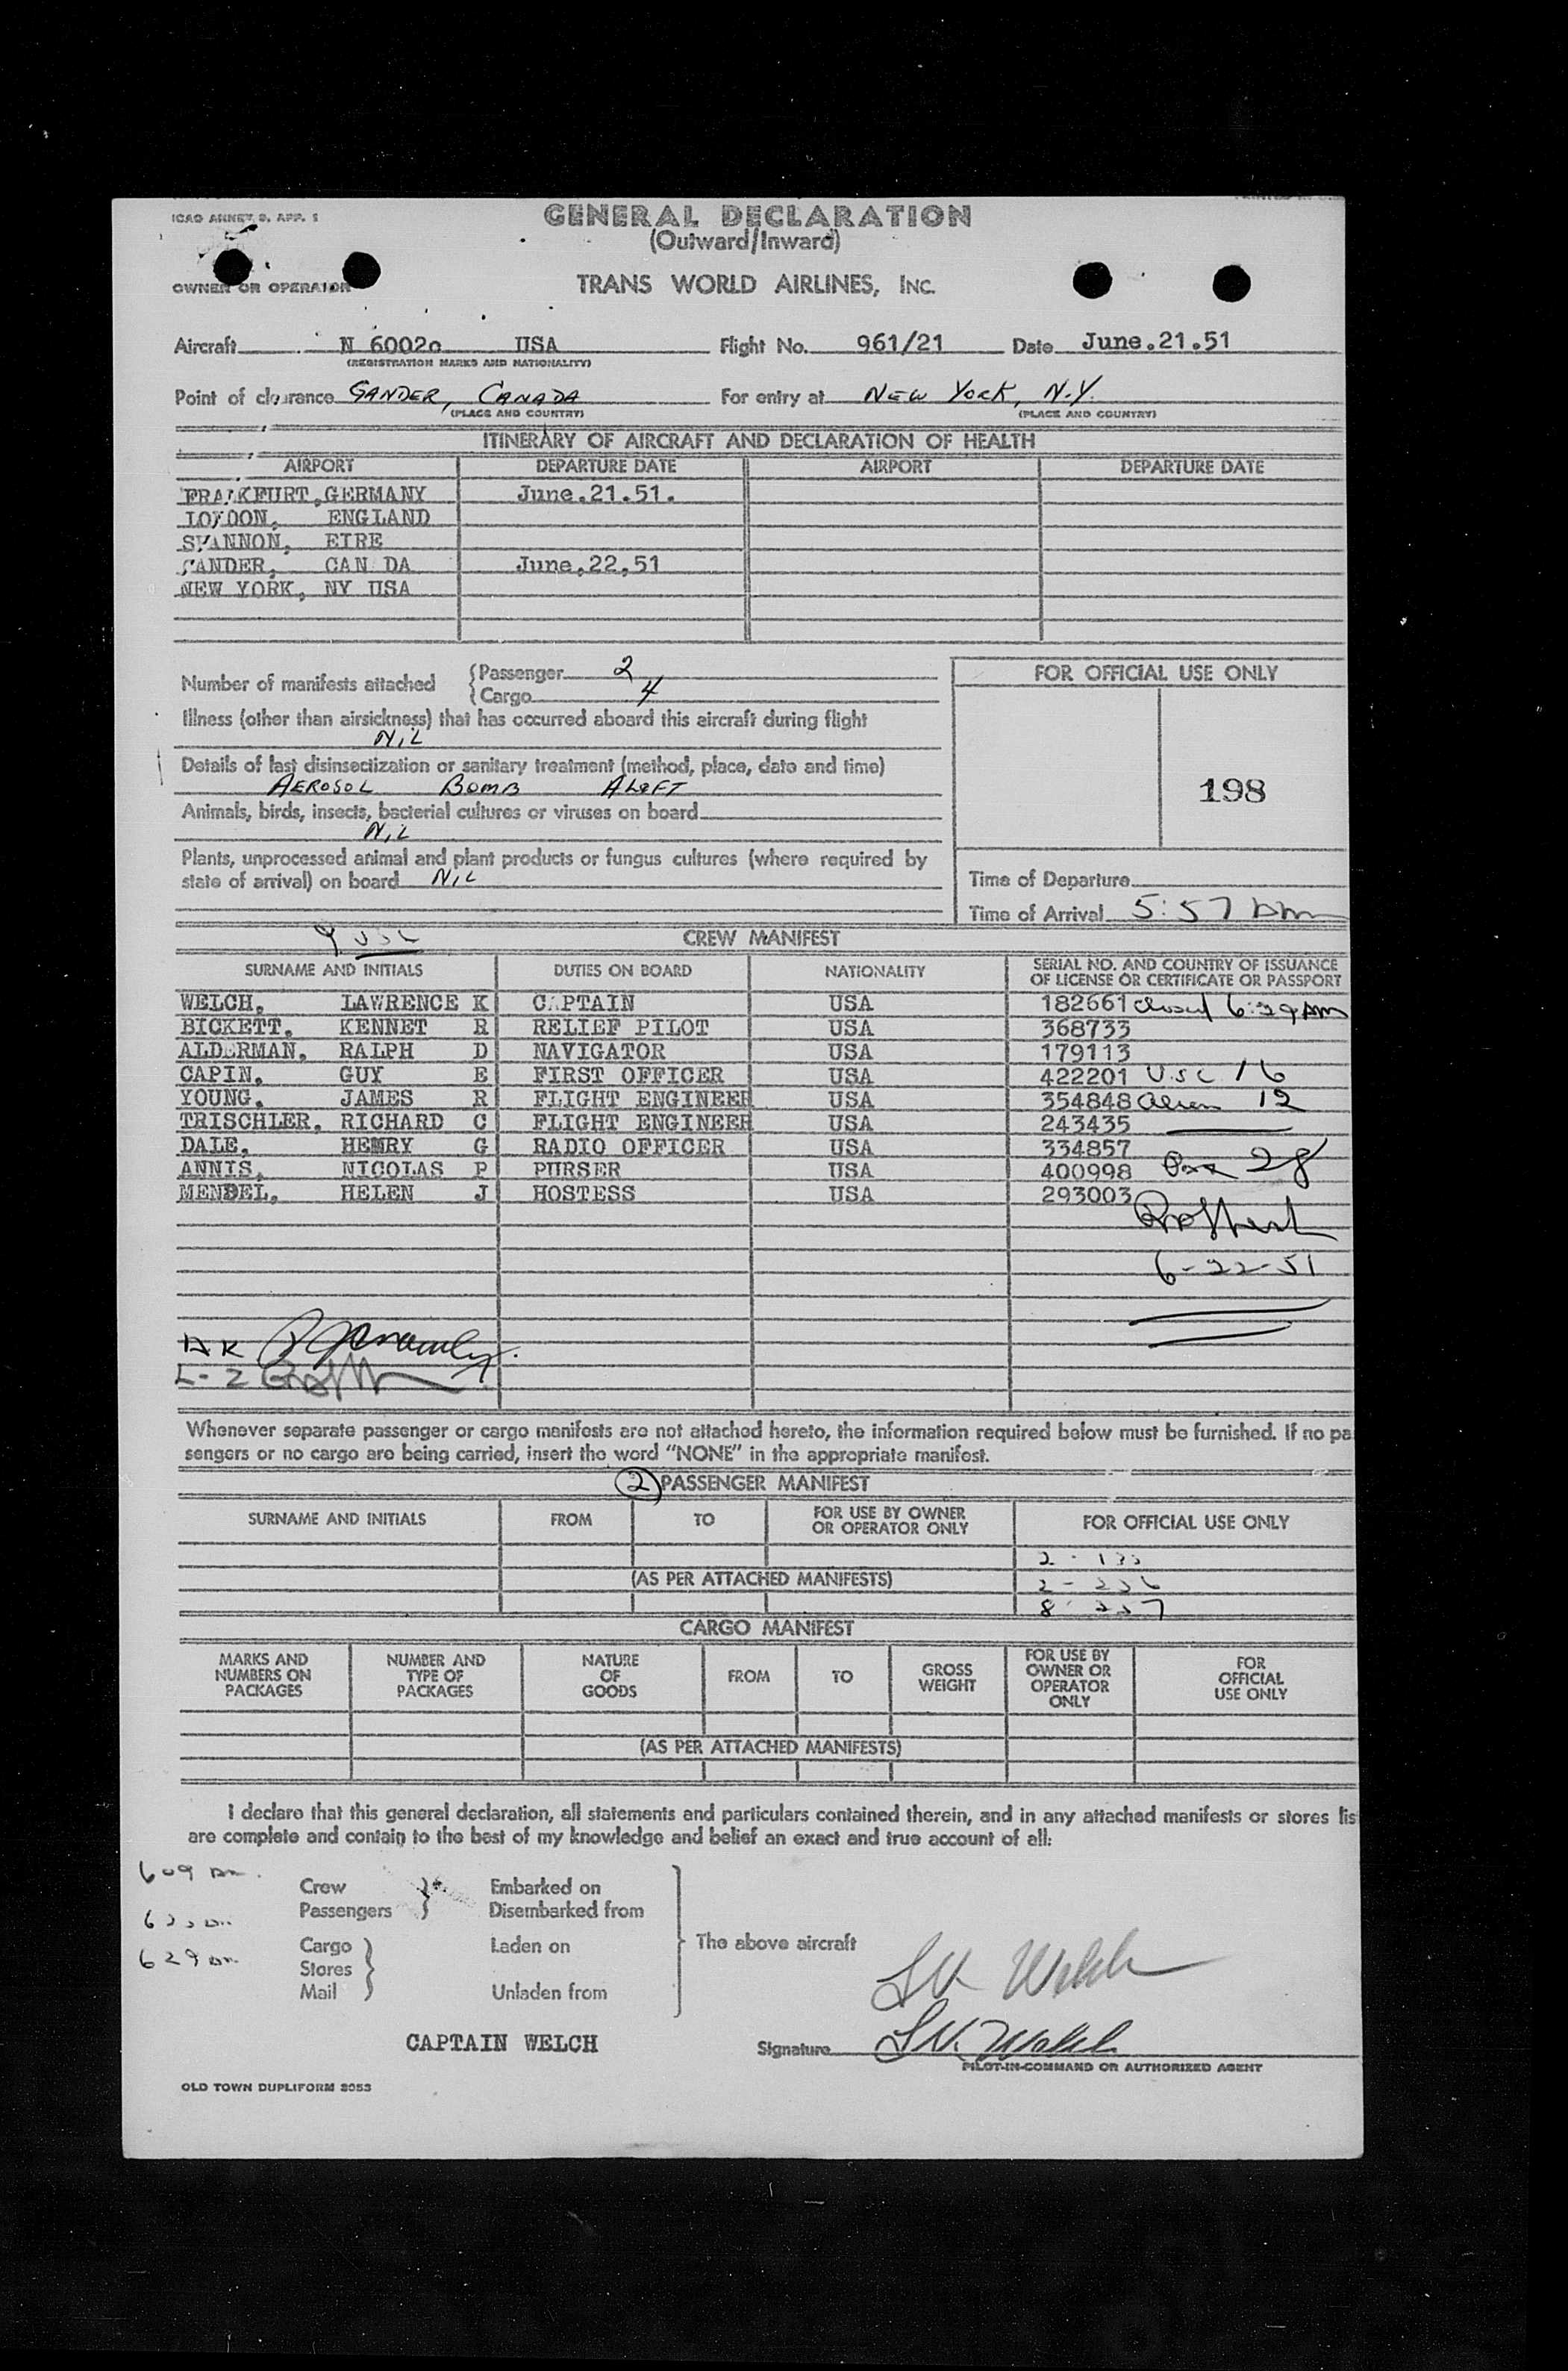 ICAO ANNEX 9, APP. 1
GENERAL DECLARATION
(Outward/Inward)
OWNER OR OPERATOR
TRANS WORLD AIRLINES, INC.
Aircraft N 6002c USA Flight No. 961/21 Date June.21.51
(REGISTRATION MARKS AND NATIONALITY)
Point of clearance GANDER, CANADA For entry at NEW YORK, N.Y.
(PLACE AND COUNTRY) (PLACE AND COUNTRY)
ITINERARY OF AIRCRAFT AND DECLARATION OF HEALTH
AIRPORT DEPARTURE DATE AIRPORT DEPARTURE DATE
FRANKFURT,GERMANY June.21.51.
LONDON, ENGLAND
SHANNON, EIRE
GANDER, CAN DA June,22,51
NEW YORK, NY USA
Number of manifests attached
Passenger 2
Cargo 4
FOR OFFICIAL USE ONLY
Illness (other than airsickness) that has occurred aboard this aircraft during flight
NiL
Details of last disinsectization or sanitary treatment (method, place, date and time)
AEROSOL BOMB ALOFT
198
Animals, birds, insects, bacterial cultures or viruses on board
NiL
Plants, unprocessed animal and plant products or fungus cultures (where required by
state of arrival) on board NiL
Time of Departure
Time of Arrival 5:57 am
9 usc
CREW MANIFEST
SURNAME AND INITIALS DUTIES ON BOARD NATIONALITY SERIAL NO. AND COUNTRY OF ISSUANCE
OF LICENSE OR CERTIFICATE OR PASSPORT
WELCH, LAWRENCE K CAPTAIN USA 182661 closed 6:29 AM
BICKETT, KENNET R RELIEF PILOT USA 368733
ALDERMAN, RALPH D NAVIGATOR USA 179113
CAPIN, GUY E FIRST OFFICER USA 422201 U.S.C 16
YOUNG, JAMES R FLIGHT ENGINEER USA 354848 alien 12
TRISCHLER, RICHARD C FLIGHT ENGINEER USA 243435
DALE, HEMRY G RADIO OFFICER USA 334857
ANNIS, NICOLAS P PURSER USA 400998 Pax 28
MENDEL, HELEN J HOSTESS USA 293003
6-22-51
L-2
Whenever separate passenger or cargo manifests are not attached hereto, the information required below must be furnished. If no pa
sengers or no cargo are being carried, insert the word "NONE" in the appropriate manifest.
2 PASSENGER MANIFEST
SURNAME AND INITIALS FROM TO FOR USE BY OWNER
OR OPERATOR ONLY FOR OFFICIAL USE ONLY
(AS PER ATTACHED MANIFESTS)
CARGO MANIFEST
MARKS AND
NUMBERS ON
PACKAGES
NUMBER AND
TYPE OF
PACKAGES
NATURE
OF
GOODS
FROM
TO
GROSS
WEIGHT
FOR USE BY
OWNER OR
OPERATOR
ONLY
FOR
OFFICIAL
USE ONLY
(AS PER ATTACHED MANIFESTS)
I declare that this general declaration, all statements and particulars contained therein, and in any attached manifests or stores lis
are complete and contain to the best of my knowledge and belief an exact and true account of all:
609 am.
Crew Embarked on
Passengers Disembarked from
629 am
Cargo Laden on
The above aircraft
Stores
Mail Unladen from
L.K. Welch
CAPTAIN WELCH
Signature L.K. Welch
PILOT-IN-COMMAND OR AUTHORIZED AGENT
OLD TOWN DUPLIFORM 2053